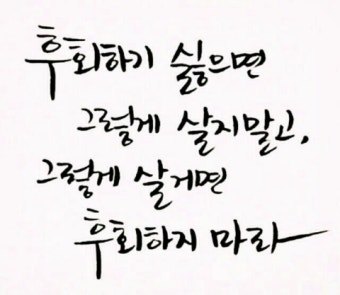 후회하기 싫으면
그렇게 살지말고,
그렇게 살게면
후회하지 마라